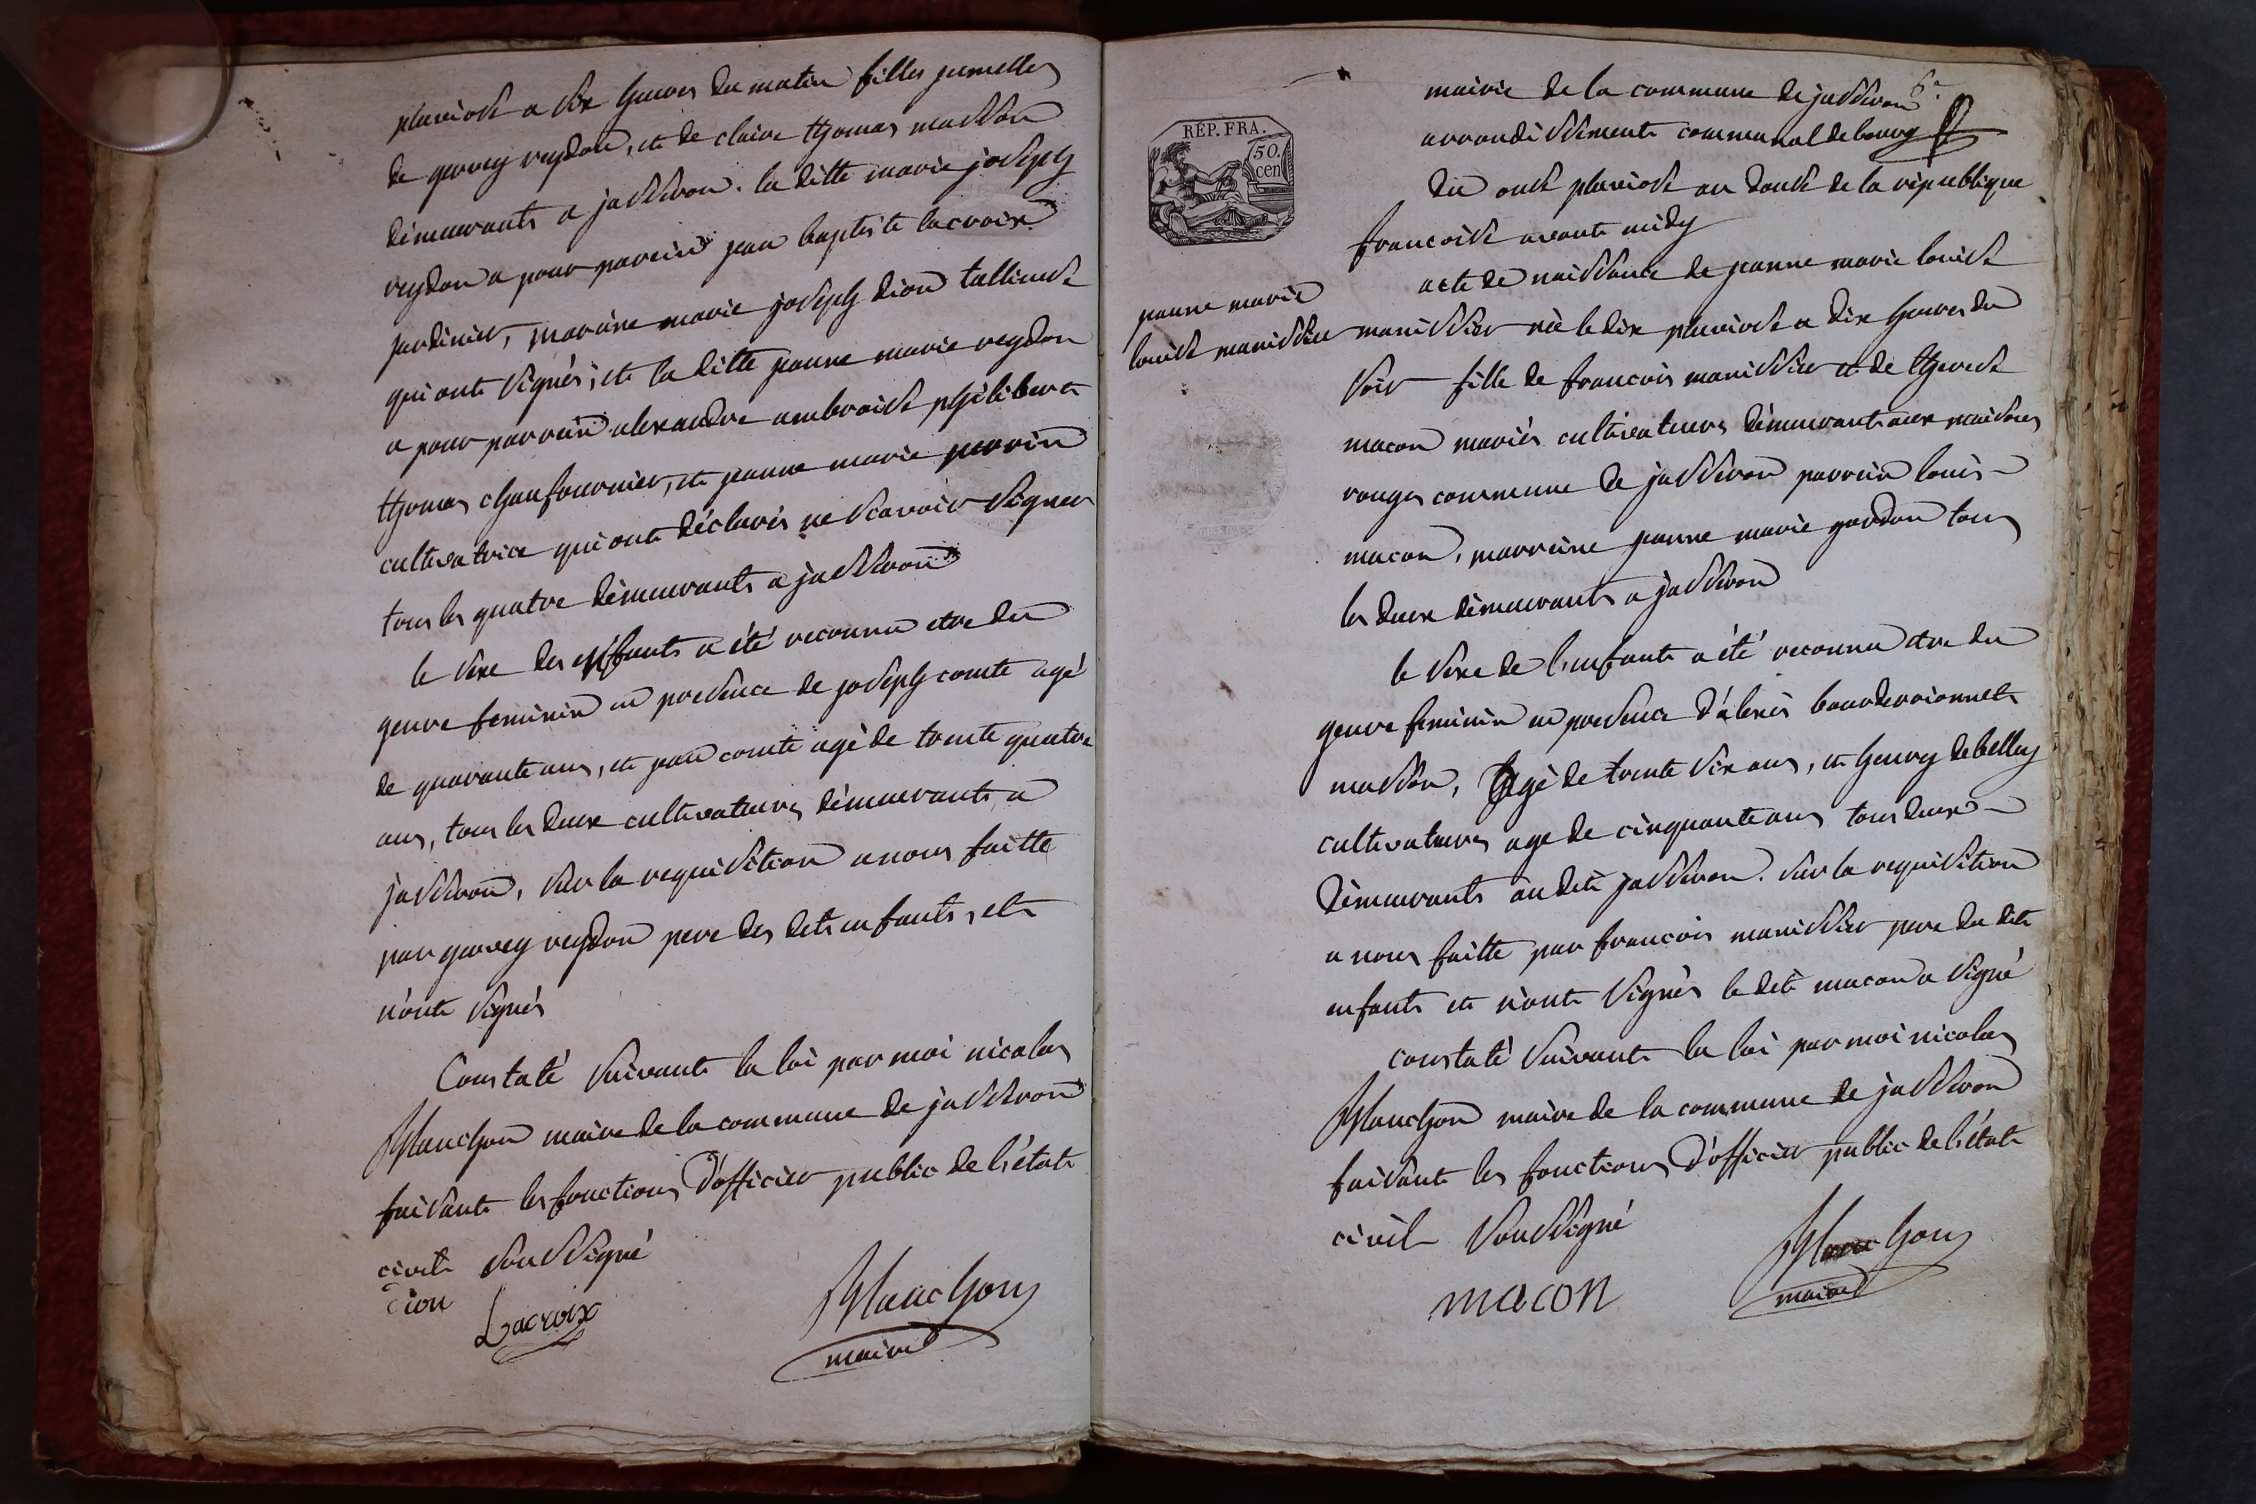 pluviose a six heures du matin filles jumelles
de gervey reydon, et de claire thomas masson
demeurants a jasseron. la ditte marie joseph
reydon a pour parein jean baptiste lacroix
jardinier, mareine marie joseph dion tallieuse
qui ont signés; et la ditte jeanne marie reydon
a pour parrein alexandre ambroise philibert
thomas chaufournier, et jeanne marie perrin
cultivatrice qui ont déclarés ne scavoir signer
tous les quatre demeurants a jasseron
le sexe des enfants a été reconnu etre du
genre feminin en presence de joseph comte agé
de quarante ans, et jean comte agé de trente quatre
ans, tous les deux cultivateurs demeurants a
jasseron, sur la requisition a nous faitte
par gervey reydon pere des dits enfants, et
n'ont signés
Constaté suivant la loi par moi nicolas
Manchon maire de la commune de jasseron
faisant les fonctions d'officier public de l'état
civil soussigné
dion
Lacroix
Manchon
maire
6e
RÉP. FRA.
50.
cen
mairie de la commune de jasseron
arrondissement communal de bourg
du onse pluviose an douse de la république
francoise avant midy
jeanne marie
louise manissier
acte de naissance de jeanne marie louise
manissier née le dix pluviose a dix heures du
soir fille de francois manissier et de therese
macon mariés cultivateurs demeurant aux maisons
rouges commune de jasseron parrein louis
macon, marreine jeanne marie gordon tous
les deux demeurants a jasseron
le sexe de l'enfant a été reconnu etre du
genre feminin en presence d'alexis bourderionnet
masson, agé de trente six ans, et henry debelley
cultivateurs age de cinquante ans tous deux
demeurants au dit jasseron. sur la requisition
a nous faitte par francois manissier pere du dit
enfant et n'ont signés le dit macon a signé
constaté suivant la loi par moi nicolas
Manchon maire de la commune de jasseron
faisant les fonctions d'officier public de l'état
civil soussigné
macon
Manchon
maire